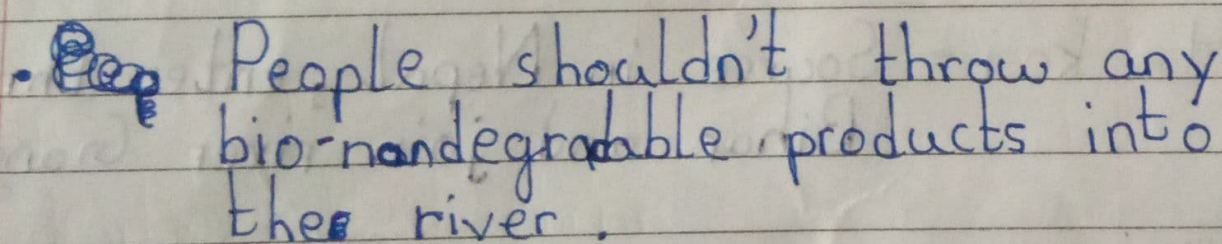 . People shouldn't throw any
bio-nondegradable products into
the river.